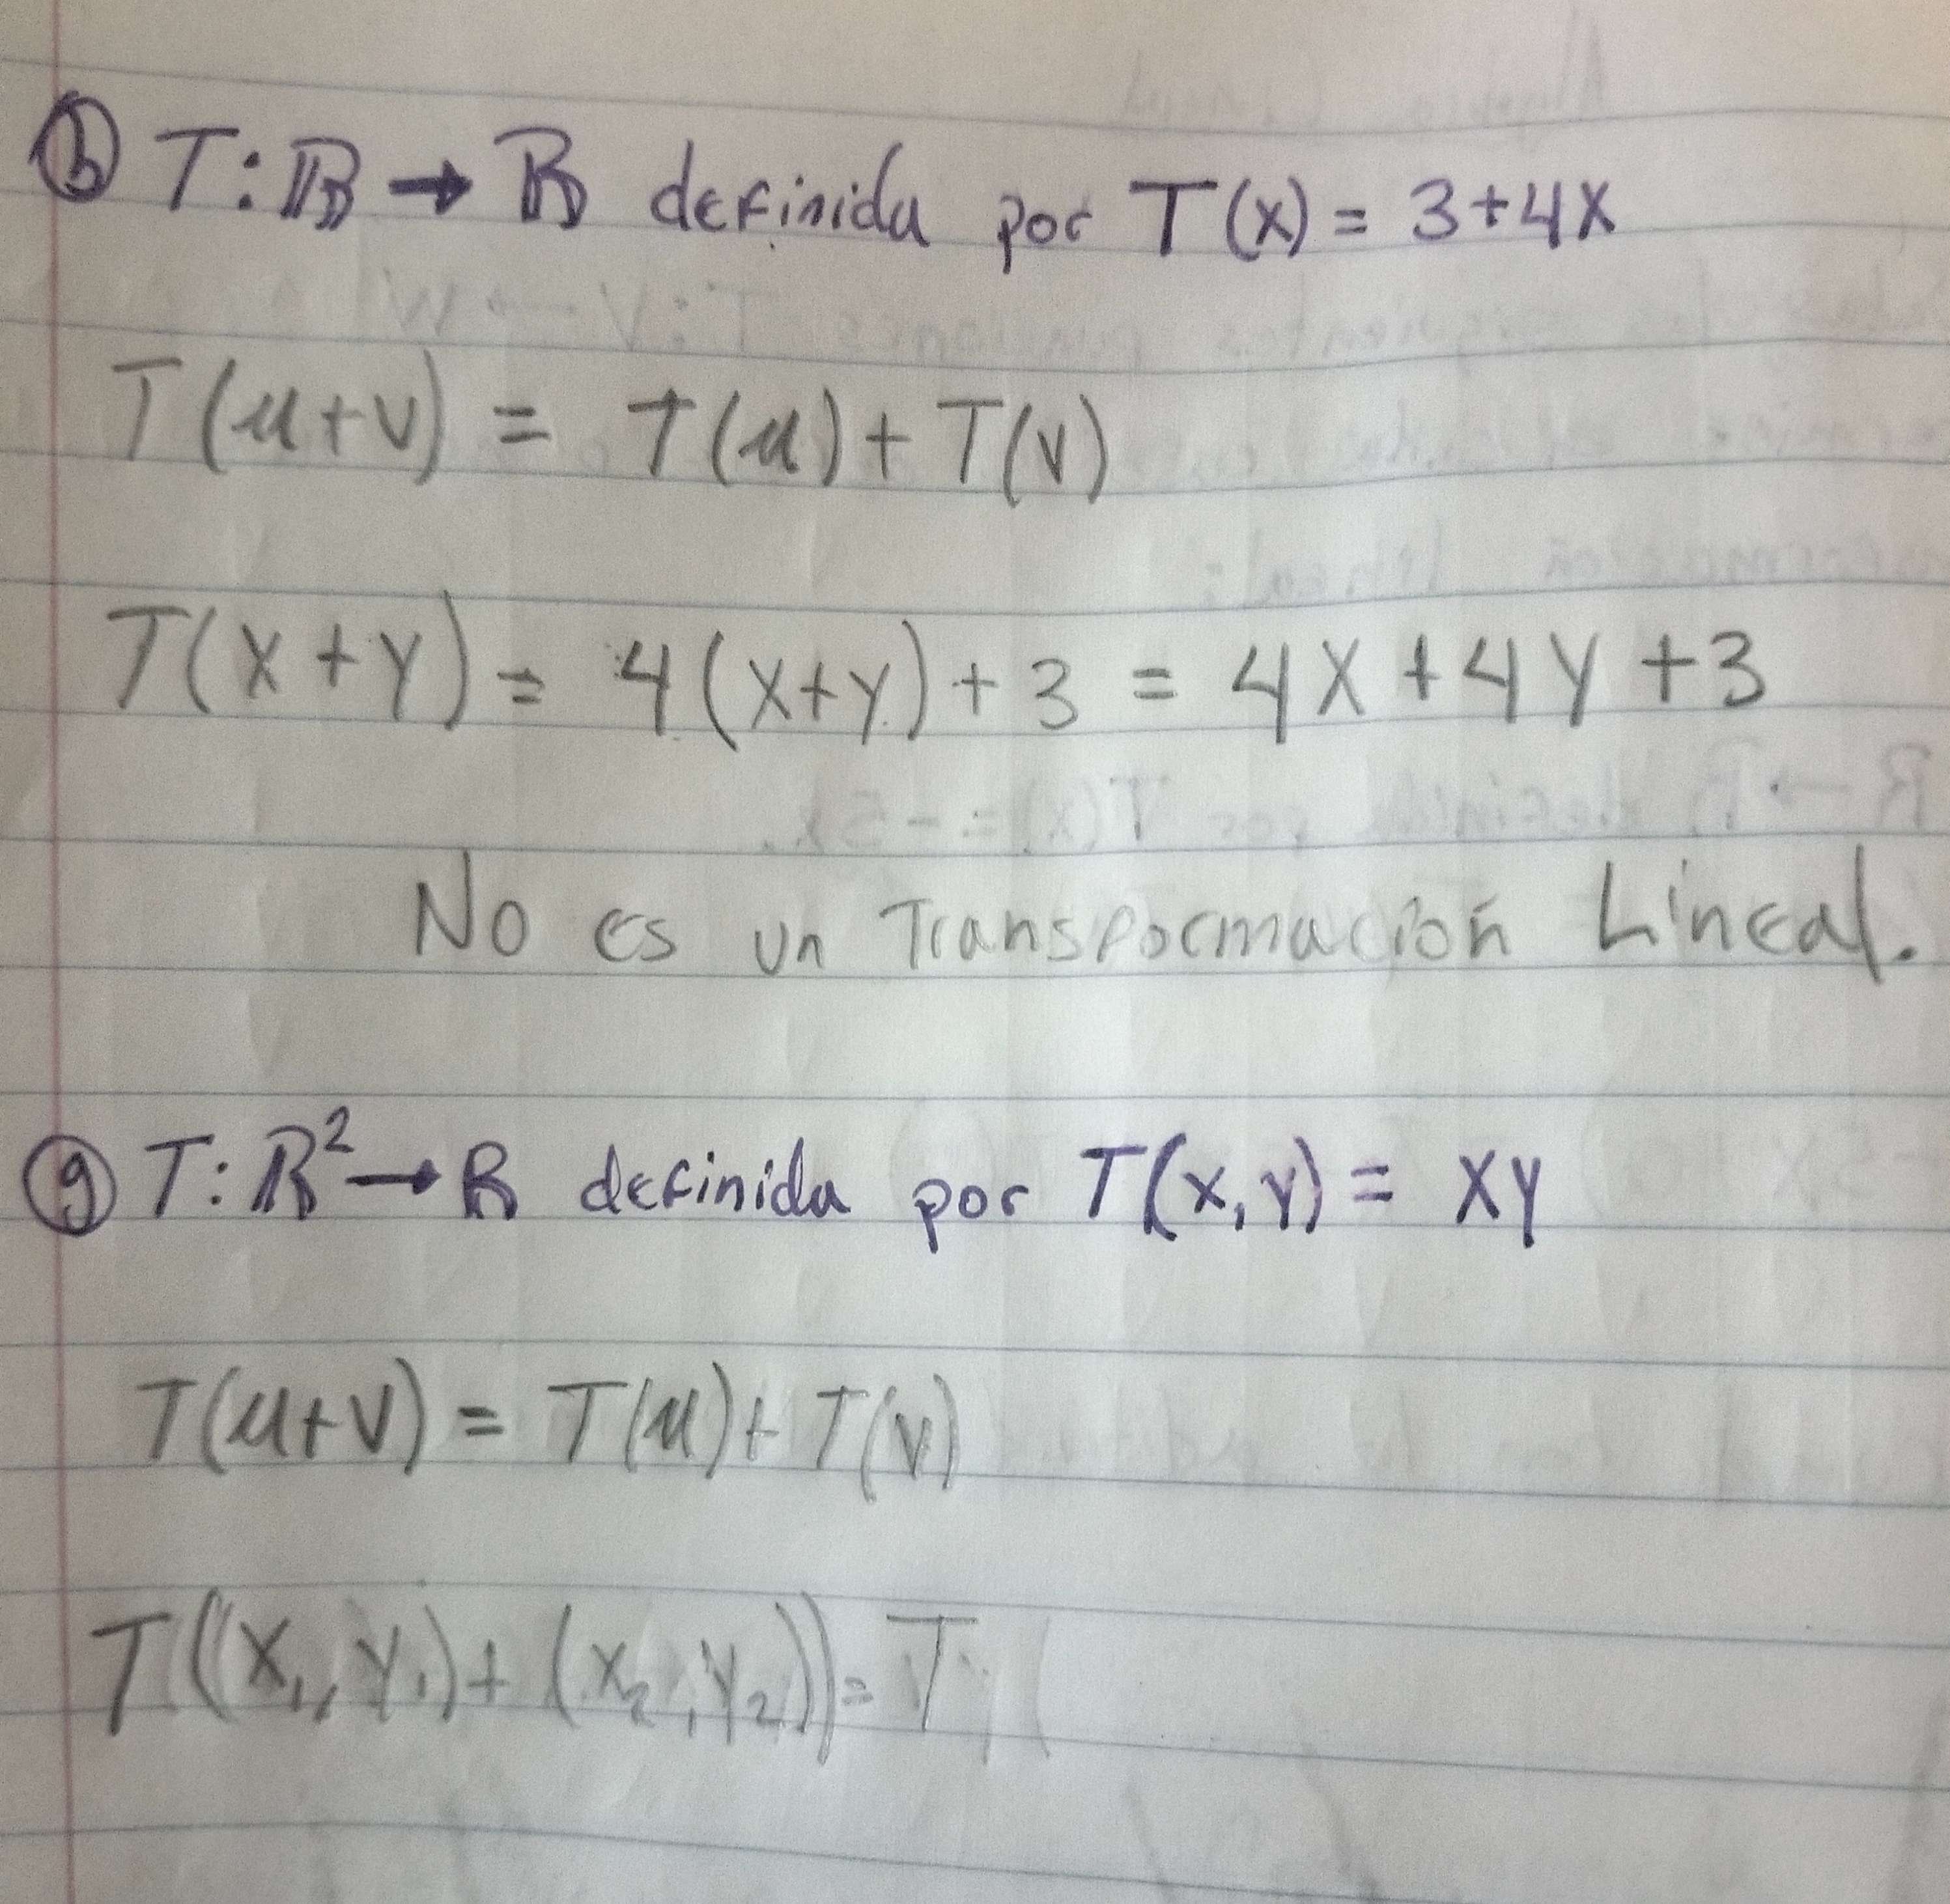 b T: R → R definida por T(x) = 3+4x
T(u+v) = T(u)+T(v)
T(x+y) = 4(x+y)+3 = 4x+4y+3
No es un Transformación Lineal.
g T: R² → R definida por T(x,y) = xy
T(u+v) = T(u)+T(v)
T((x₁,y₁)+(x₂,y₂)) = T